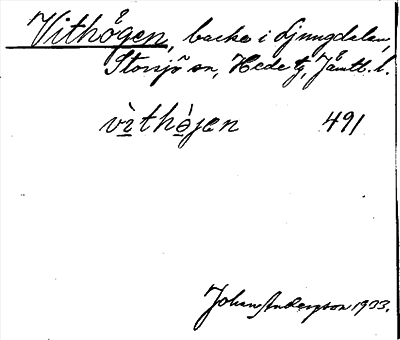 Vithögen, backe i Ljungdalen,
Storsjö sn, Hede tg, Jämtl. l.
vìthò̱jen 491
Johan Andersson 1933.